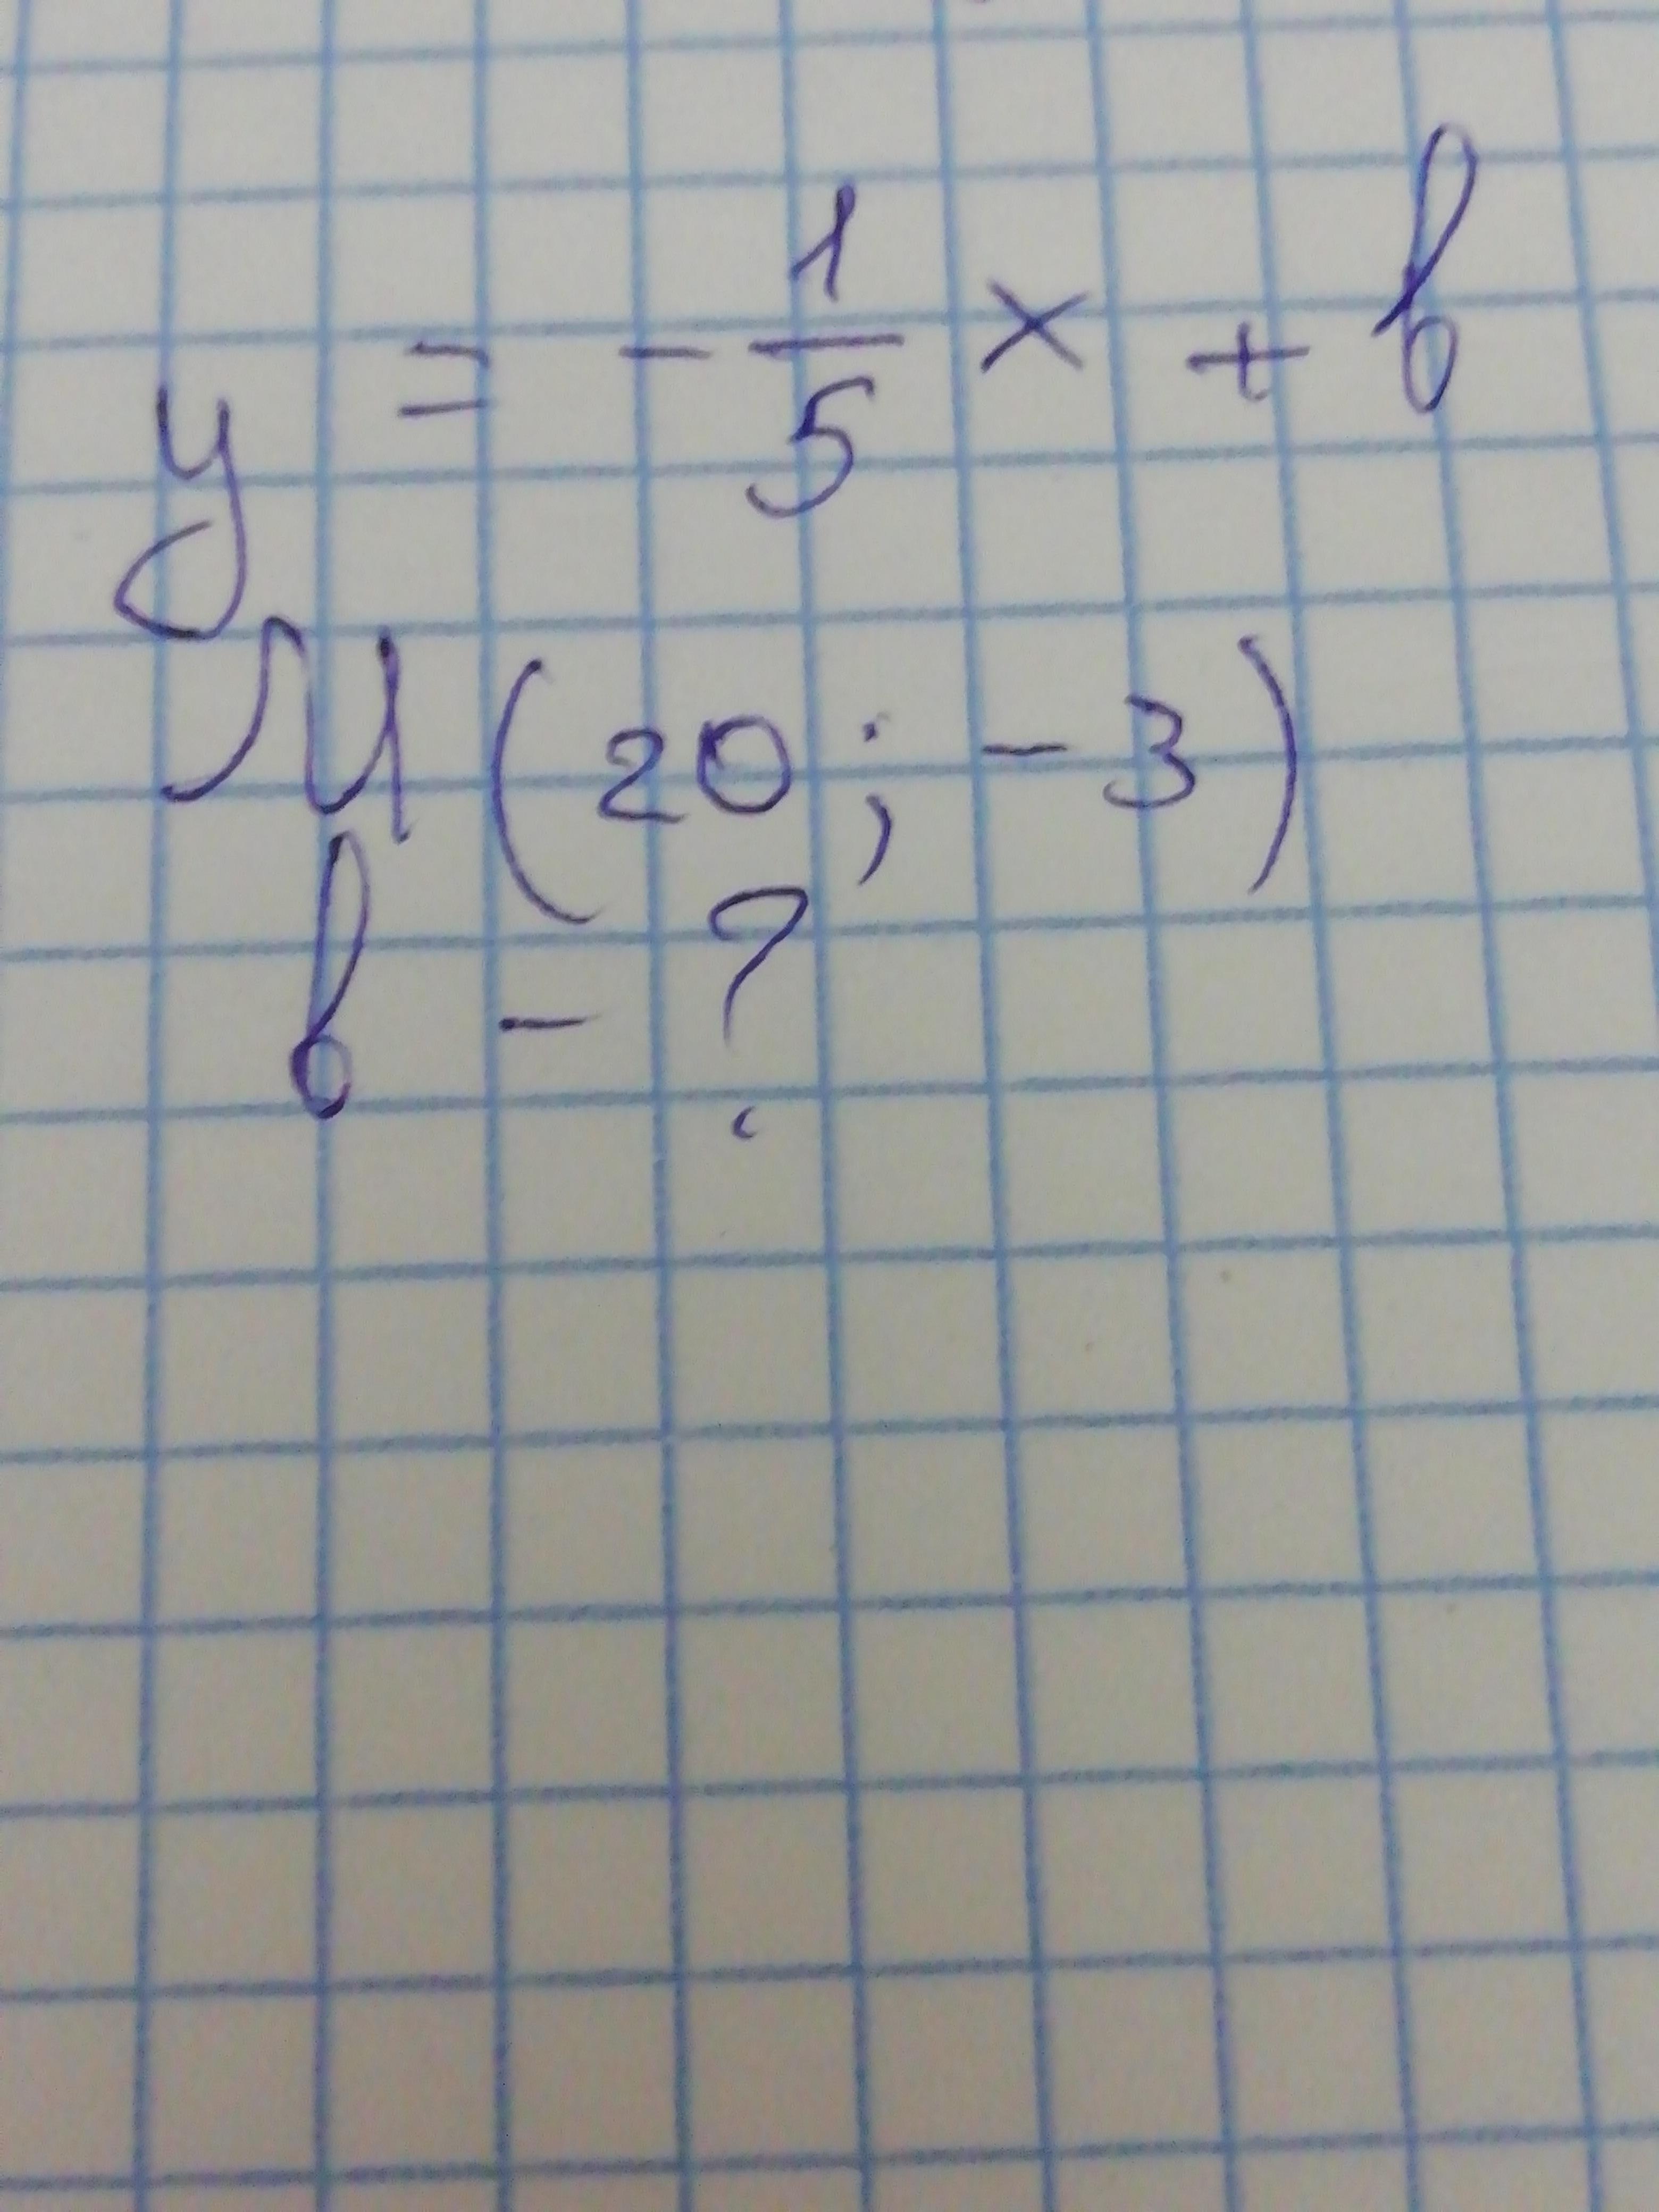 y = -1/5 x + b
M (20; -3)
b - ?